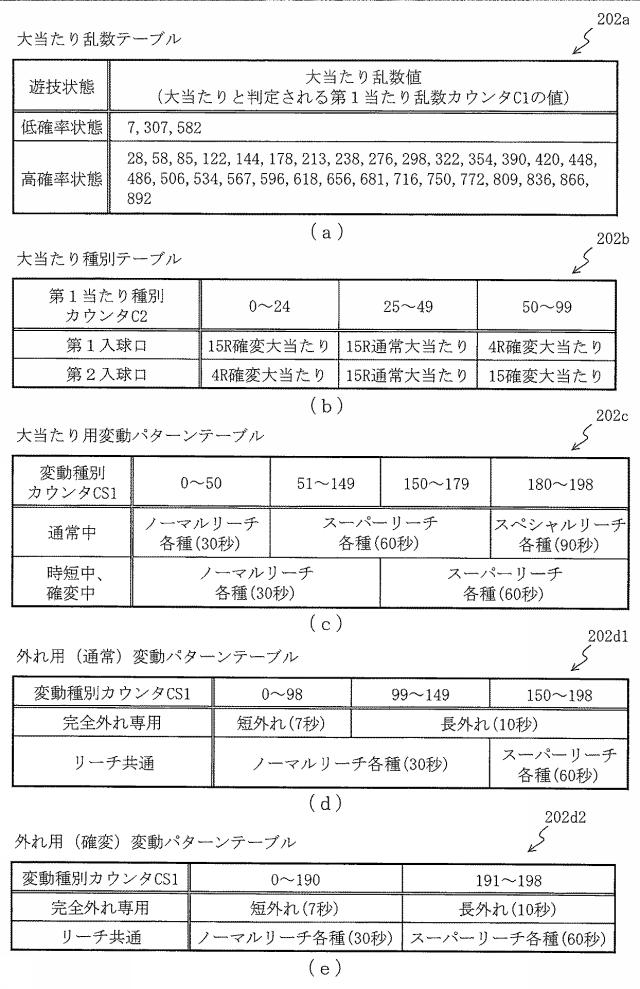 202a
大当たり乱数テーブル
遊技状態
大当たり乱数値
(大当たりと判定される第1当たり乱数カウンタC1の値)
低確率状態
7,307,582
高確率状態
28,58,85,122,144,178,213,238,276,298,322,354,390,420,448,
486,506,534,567,596,618,656,681,716,750,772,809,836,866,
892
(a)
202b
大当たり種別テーブル
第1当たり種別
カウンタC2
0～24
25～49
50～99
第1入球口
15R確変大当たり
15R通常大当たり
4R確変大当たり
第2入球口
4R確変大当たり
15R通常大当たり
15確変大当たり
(b)
202c
大当たり用変動パターンテーブル
変動種別
カウンタCS1
0～50
51～149
150～179
180～198
通常中
ノーマルリーチ
各種(30秒)
スーパーリーチ
各種(60秒)
スペシャルリーチ
各種(90秒)
時短中、
確変中
ノーマルリーチ
各種(30秒)
スーパーリーチ
各種(60秒)
(c)
202d1
外れ用（通常）変動パターンテーブル
変動種別カウンタCS1
0～98
99～149
150～198
完全外れ専用
短外れ(7秒)
長外れ(10秒)
リーチ共通
ノーマルリーチ各種(30秒)
スーパーリーチ
各種(60秒)
(d)
202d2
外れ用（確変）変動パターンテーブル
変動種別カウンタCS1
0～190
191～198
完全外れ専用
短外れ(7秒)
長外れ(10秒)
リーチ共通
ノーマルリーチ各種(30秒)
スーパーリーチ各種(60秒)
(e)